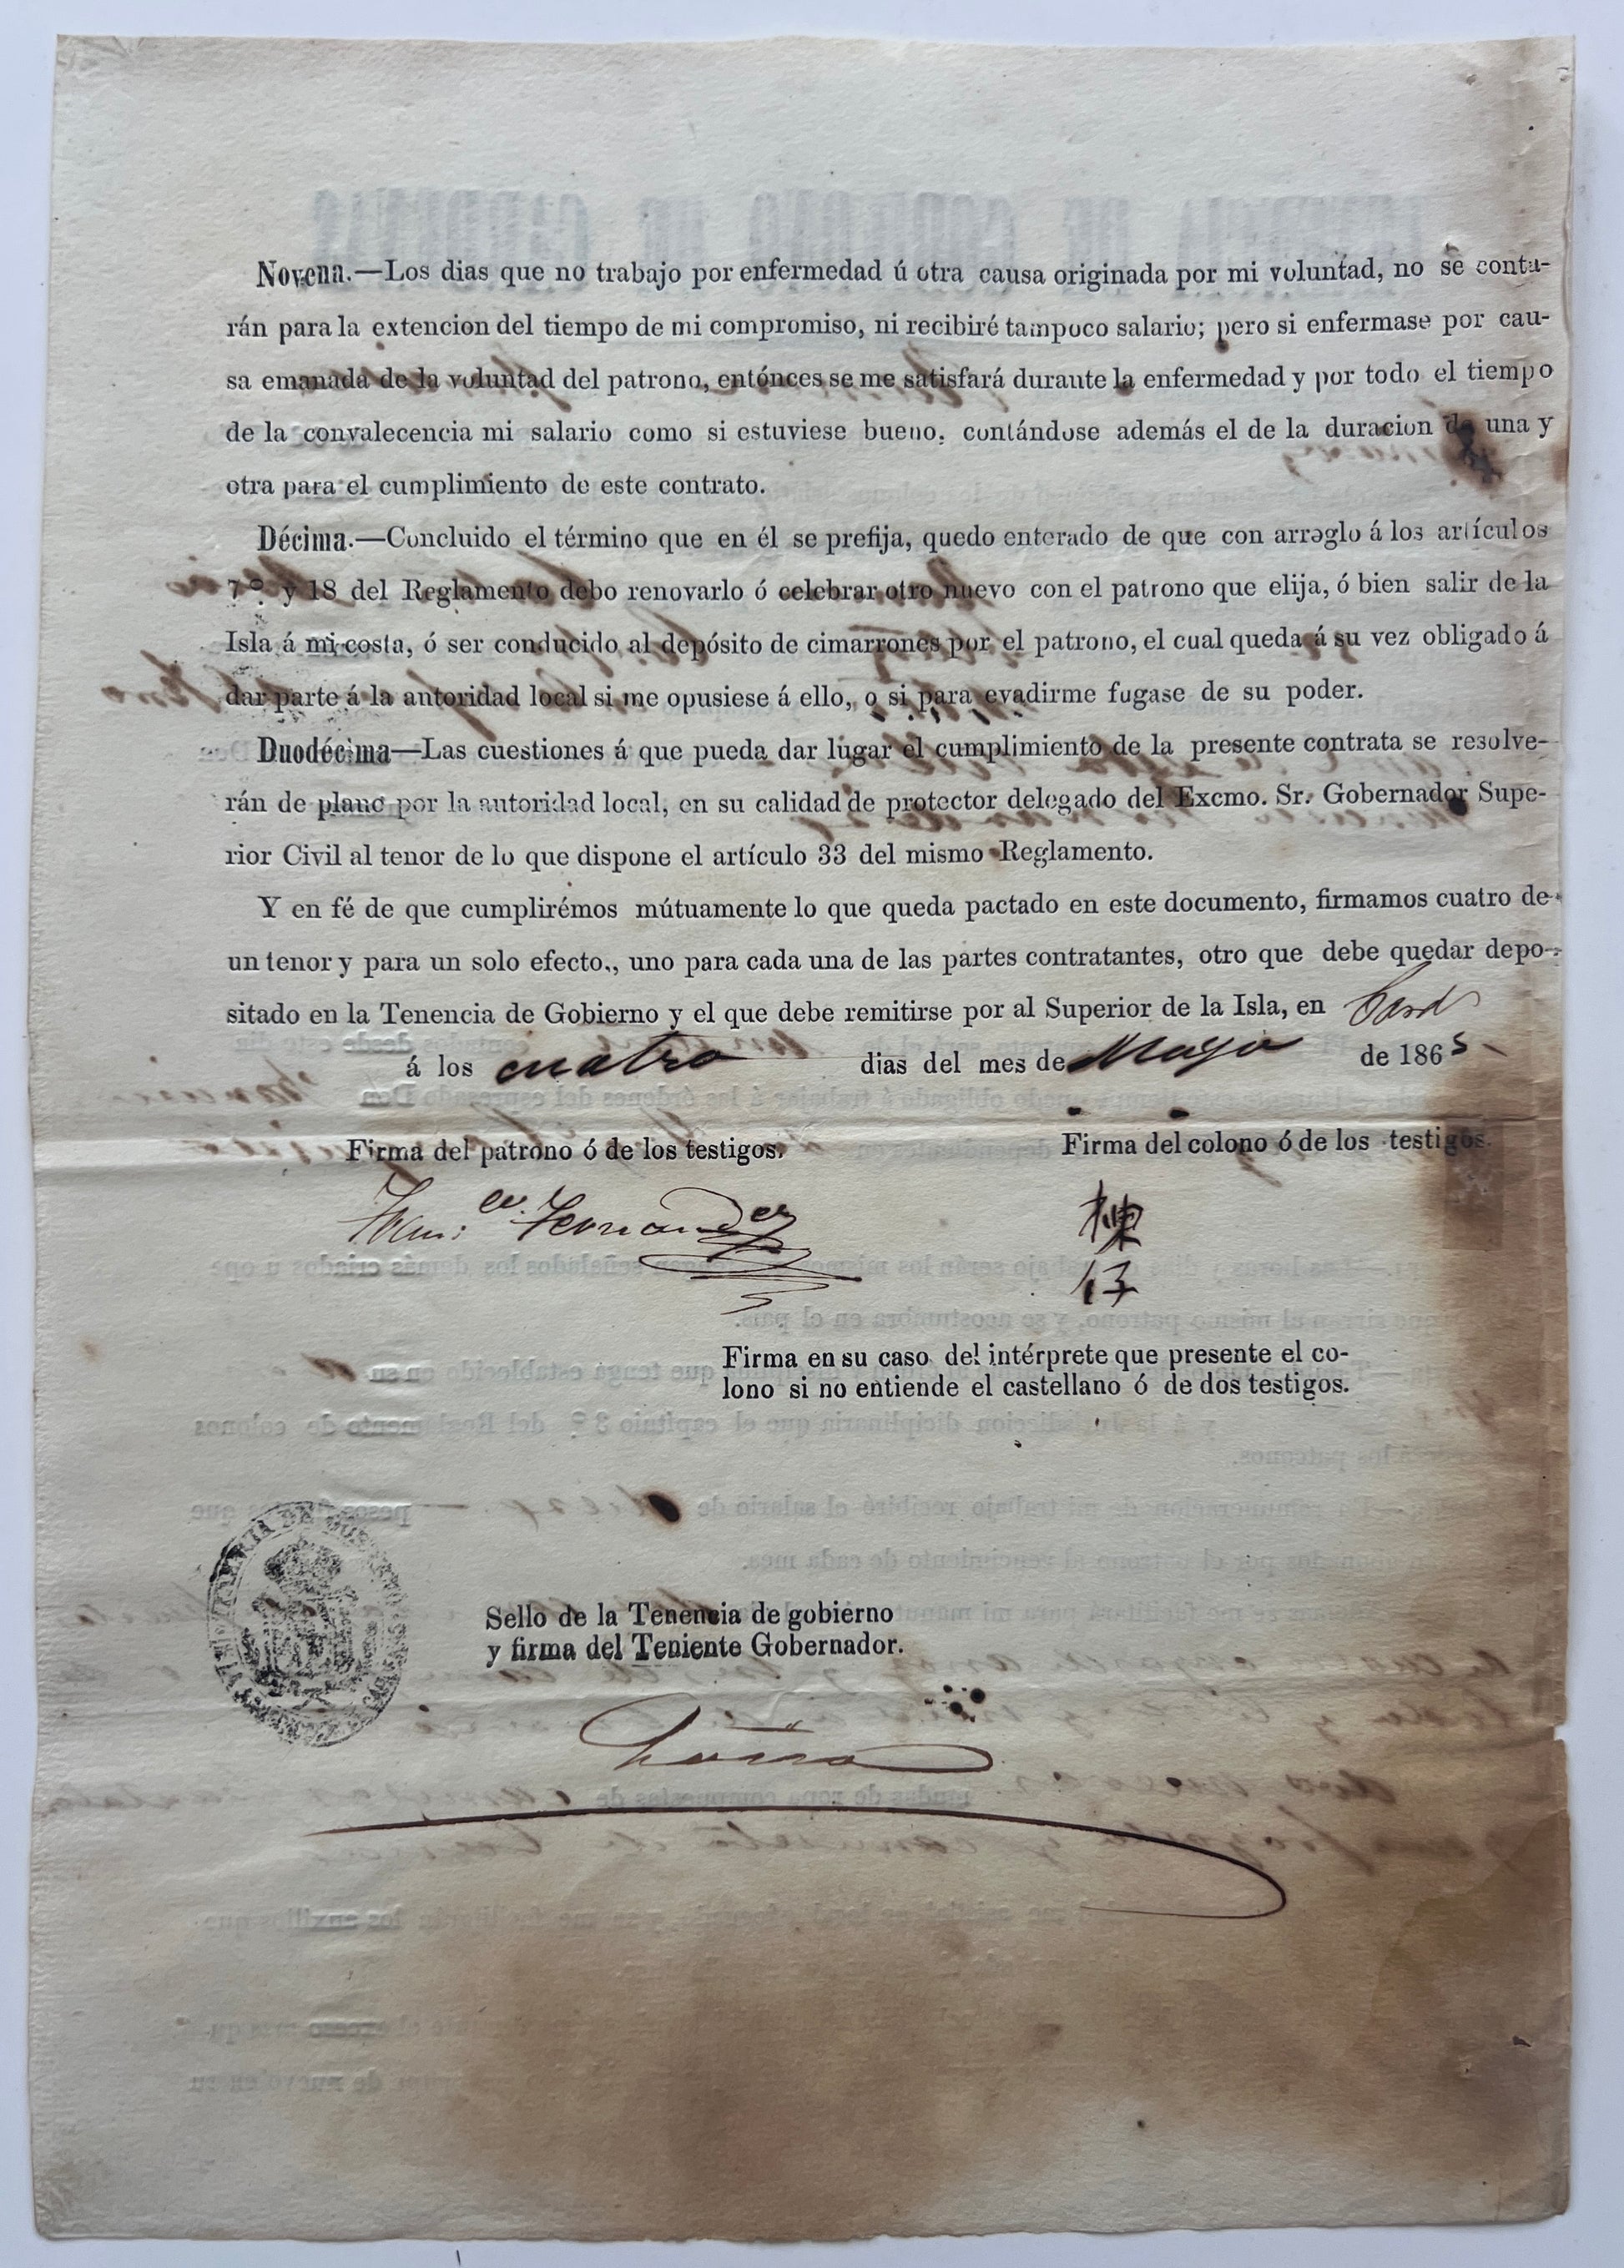 Novena.—Los dias que no trabajo por enfermedad ú otra causa originada por mi voluntad, no se conta-
rán para la extencion del tiempo de mi compromiso, ni recibiré tampoco salario; pero si enfermase por cau-
sa emanada de la voluntad del patrono, entónces se me satisfará durante la enfermedad y por todo el tiempo
de la convalecencia mi salario como si estuviese bueno, contándose además el de la duracion de una y
otra para el cumplimiento de este contrato.
Décima.—Concluido el término que en él se prefija, quedo enterado de que con arreglo á los artículos
7º. y 18 del Reglamento debo renovarlo ó celebrar otro nuevo con el patrono que elija, ó bien salir de la
Isla á mi costa, ó ser conducido al depósito de cimarrones por el patrono, el cual queda á su vez obligado á
dar parte á la autoridad local si me opusiese á ello, o si para evadirme fugase de su poder.
Duodécima—Las cuestiones á que pueda dar lugar el cumplimiento de la presente contrata se resolve-
rán de plano por la autoridad local, en su calidad de protector delegado del Excmo. Sr. Gobernador Supe-
rior Civil al tenor de lo que dispone el artículo 33 del mismo Reglamento.
Y en fé de que cumplirémos mútuamente lo que queda pactado en este documento, firmamos cuatro de
un tenor y para un solo efecto., uno para cada una de las partes contratantes, otro que debe quedar depo-
sitado en la Tenencia de Gobierno y el que debe remitirse por al Superior de la Isla, en Card
á los cuatro dias del mes de Mayo de 1865
Firma del patrono ó de los testigos. Firma del colono ó de los testigos.
Fran.co Fernandez
棟
仔
Firma en su caso del intérprete que presente el co-
lono si no entiende el castellano ó de dos testigos.
Sello de la Tenencia de gobierno
y firma del Teniente Gobernador.